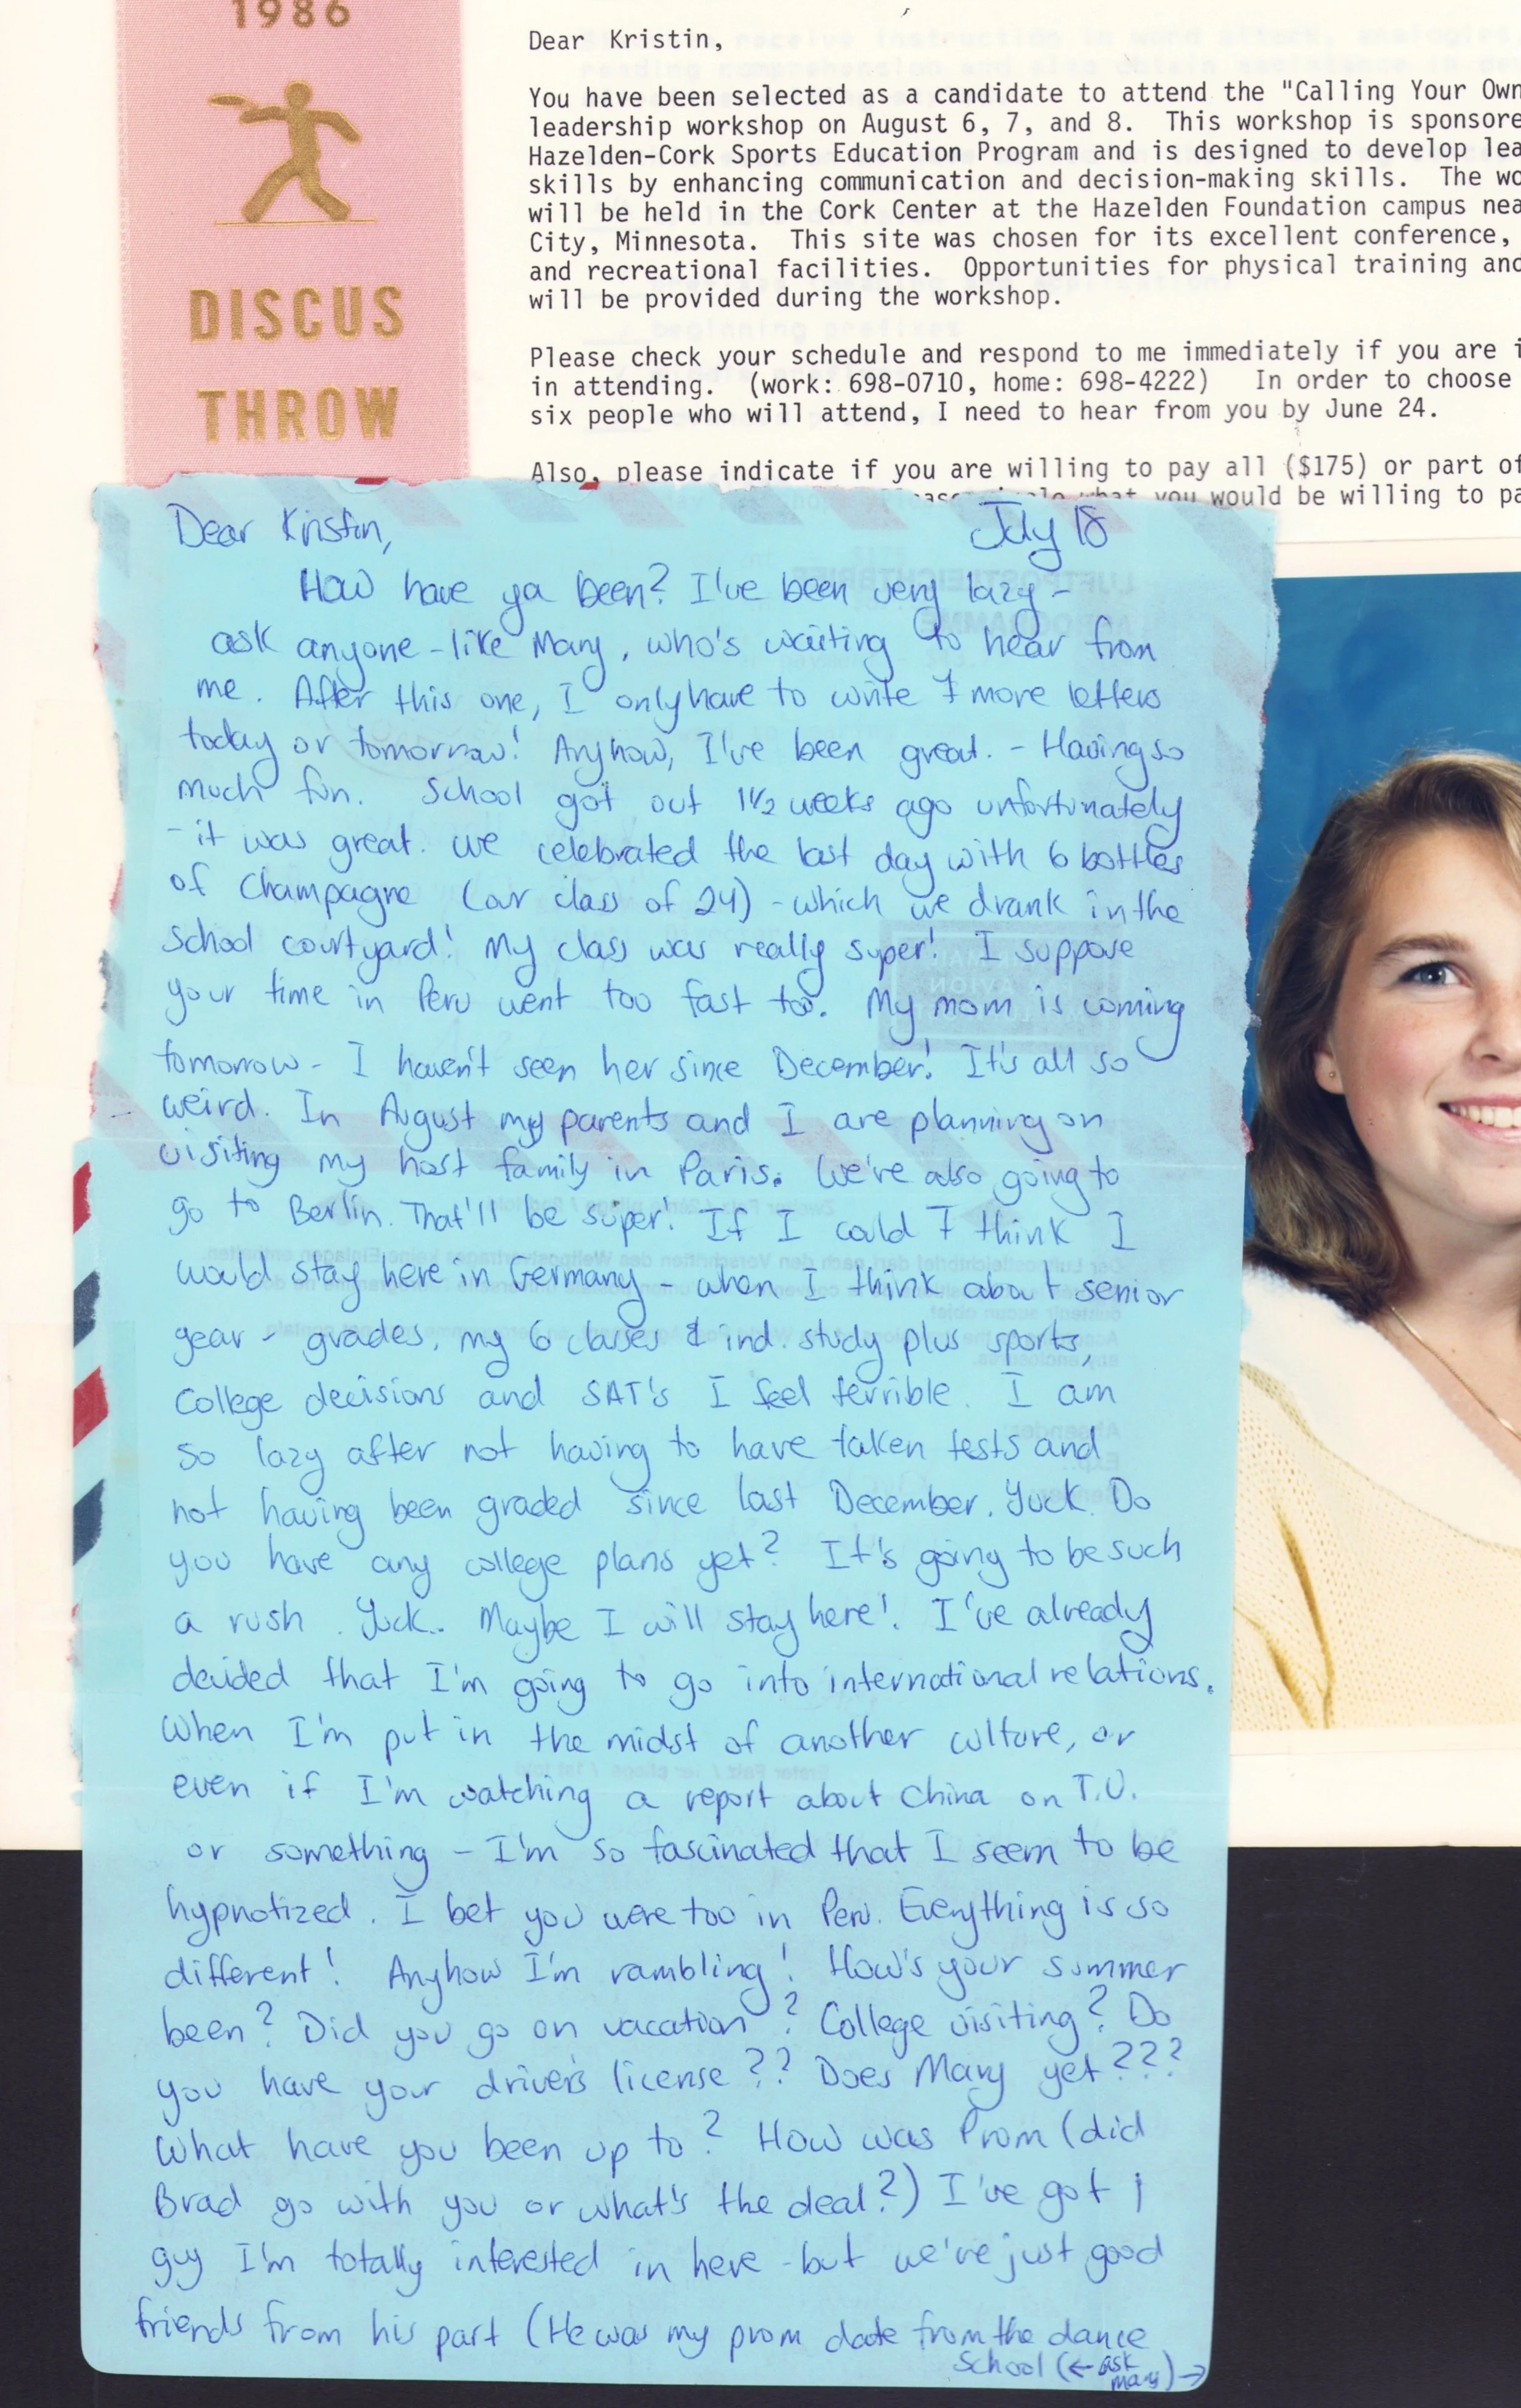 1986
DISCUS
THROW
Dear Kristin,
You have been selected as a candidate to attend the "Calling Your Own
leadership workshop on August 6, 7, and 8. This workshop is sponsore
Hazelden-Cork Sports Education Program and is designed to develop lea
skills by enhancing communication and decision-making skills. The wo
will be held in the Cork Center at the Hazelden Foundation campus nea
City, Minnesota. This site was chosen for its excellent conference,
and recreational facilities. Opportunities for physical training and
will be provided during the workshop.
Please check your schedule and respond to me immediately if you are i
in attending. (work: 698-0710, home: 698-4222) In order to choose
six people who will attend, I need to hear from you by June 24.
Also, please indicate if you are willing to pay all ($175) or part of
what you would be willing to pa
Dear Kristin, July 18
How have ya been? I've been very lazy -
ask anyone - like Mary, who's waiting to hear from
me. After this one, I only have to write 7 more letters
today or tomorrow! Anyhow, I've been great. - Having so
much fun. School got out 1 1/2 weeks ago unfortunately
- it was great. we celebrated the last day with 6 bottles
of Champagne (our class of 24) - which we drank in the
School courtyard! My class was really super! I suppose
your time in Peru went too fast too. My mom is coming
tomorrow - I haven't seen her since December! It's all so
weird. In August my parents and I are planning on
visiting my host family in Paris. We're also going to
go to Berlin. That'll be super! If I could I think I
would stay here in Germany - when I think about senior
year - grades, my 6 classes & ind. study plus sports,
College decisions and SAT's I feel terrible. I am
so lazy after not having to have taken tests and
not having been graded since last December. Yuck. Do
you have any college plans yet? It's going to be such
a rush. Yuck.. Maybe I will stay here!. I've already
decided that I'm going to go into international relations.
When I'm put in the midst of another culture, or
even if I'm watching a report about China on T.V.
or something - I'm so fascinated that I seem to be
hypnotized. I bet you were too in Peru. Everything is so
different! Anyhow I'm rambling! How's your summer
been? Did you go on vacation? College visiting? Do
you have your driver's license?? Does Mary yet???
What have you been up to? How was Prom (did
Brad go with you or what's the deal?) I've got 1
guy I'm totally interested in here - but we're just good
friends from his part (He was my prom date from the dance
School (← ask
Mary) →